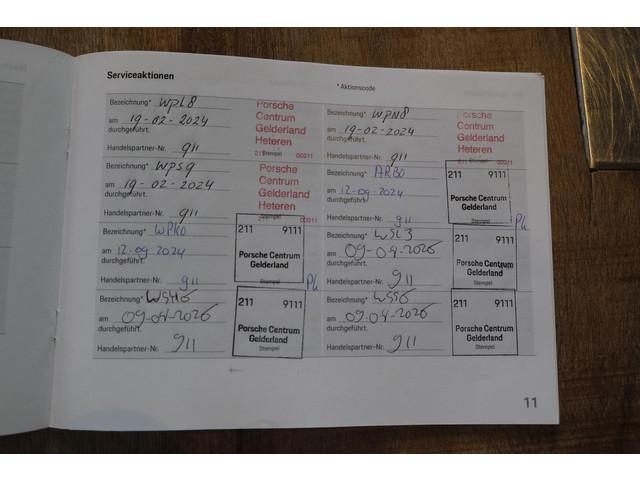 Serviceaktionen
* Aktionscode
Bezeichnung* WPL8
am 19-02-2024
durchgeführt.
Handelspartner-Nr. 911
Porsche
Centrum
Gelderland
Heteren
Stempel
Bezeichnung* WPN8
am 19-02-2024
durchgeführt.
Handelspartner-Nr. 911
Porsche
Centrum
Gelderland
Heteren
211 Stempel 00911
Bezeichnung* WPS9
am 19-02-2024
durchgeführt.
Handelspartner-Nr. 911
Porsche
Centrum
Gelderland
Heteren
Stempel
Bezeichnung* ARB0
am 12-09-2024
durchgeführt.
Handelspartner-Nr. 911
211 9111
Porsche Centrum
Gelderland
Stempel
Bezeichnung* WPK0
am 12-09-2024
durchgeführt.
Handelspartner-Nr. 911
211 9111
Porsche Centrum
Gelderland
Bezeichnung* WSL3
am 09-04-2026
durchgeführt.
Handelspartner-Nr. 911
211 9111
Porsche Centrum
Gelderland
Bezeichnung*
am 09-04-2026
durchgeführt.
Handelspartner-Nr. 911
211 9111
Porsche Centrum
Gelderland
Stempel
Bezeichnung*
am 09-04-2026
durchgeführt.
Handelspartner-Nr. 911
211 9111
Porsche Centrum
Gelderland
Stempel
11